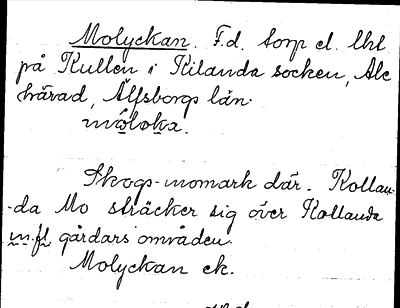 Molyckan. F.d. torp el. lht
på Kullen i Kilanda socken, Ale
härad, Älfsborgs län.
móloka.
Skogs-momark där. Kollan-
-da Mo sträcker sig över Kollanda
m.fl gårdars områden.
Molyckan ek.